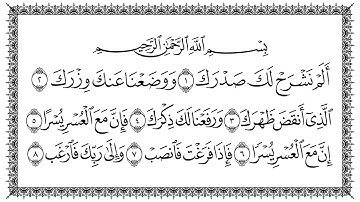 بِسْمِ اللَّهِ الرَّحْمَٰنِ الرَّحِيمِ
أَلَمْ نَشْرَحْ لَكَ صَدْرَكَ ١ وَوَضَعْنَا عَنكَ وِزْرَكَ ٢
الَّذِي أَنقَضَ ظَهْرَكَ ٣ وَرَفَعْنَا لَكَ ذِكْرَكَ ٤ فَإِنَّ مَعَ الْعُسْرِ يُسْرًا ٥
إِنَّ مَعَ الْعُسْرِ يُسْرًا ٦ فَإِذَا فَرَغْتَ فَانصَبْ ٧ وَإِلَىٰ رَبِّكَ فَارْغَب ٨